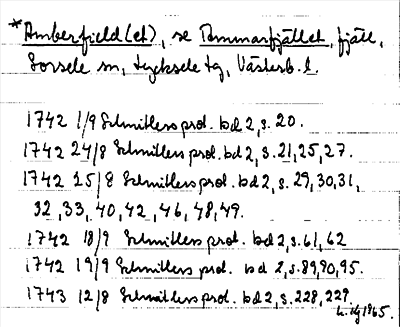 *Amberfield(et), se Ammarfjället, fjäll,
Sorsele sn, Lycksele tg, Västerb. l.
1742 1/9 Schnitlers prot. bd 2, s. 20.
1742 24/8 Schnitlers prot. bd 2, s. 21, 25, 27.
1742 25/8 Schnitlers prot. bd 2, s. 29, 30, 31,
32, 33, 40, 42, 46, 48, 49.
1742 18/9 Schnitlers prot. bd 2, s. 61, 62
1742 19/9 Schnitlers prot. bd 2, s. 89, 90, 95.
1743 12/8 Schnitlers prot. bd 2, s. 228, 229
1965.